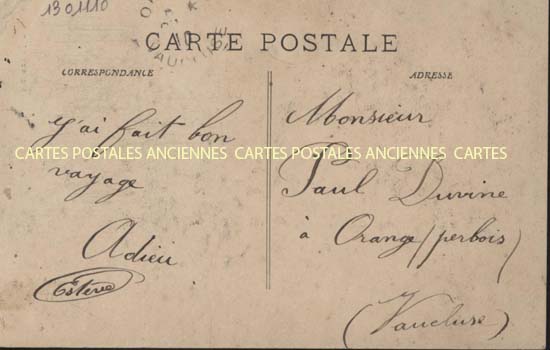 1301110
CARTE POSTALE
CORRESPONDANCE
ADRESSE
j'ai fait bon
vayage
Adieu
Estève
Monsieur
Paul Duvine
à Orange (perbois)
(Vaucluse)
CARTES POSTALES ANCIENNES CARTES POSTALES ANCIENNES CARTES